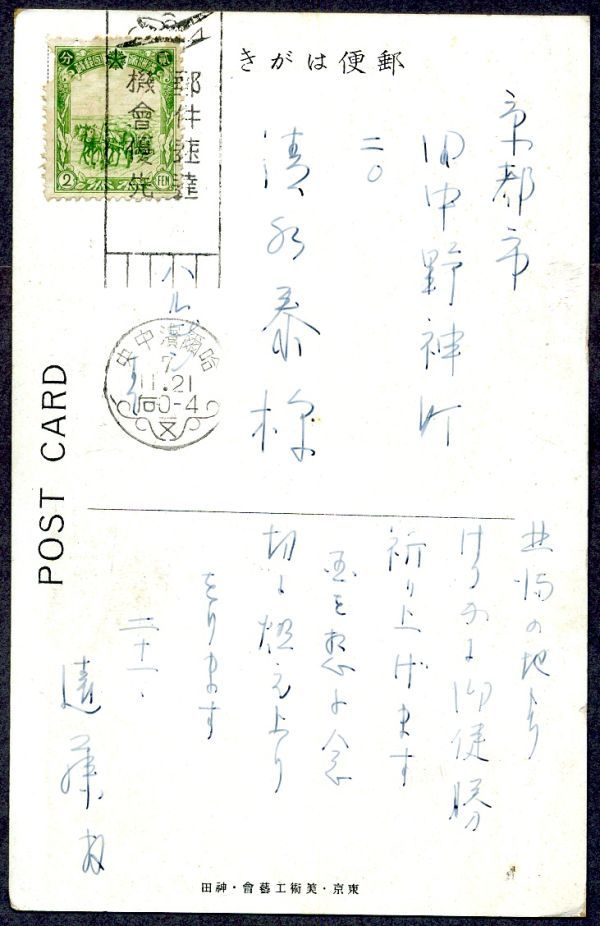 郵便はがき
分
2
FEN
郵件速達
機會優先
哈爾濱中央
7
11.21
后0-4
POST CARD
京都市
田中野神町
二〇
清水泰様
ハルピン
の地より
御健勝
祈り上げます
念
切に燃え上り
をります
二十一、
遠藤
東京・美術工藝會・神田